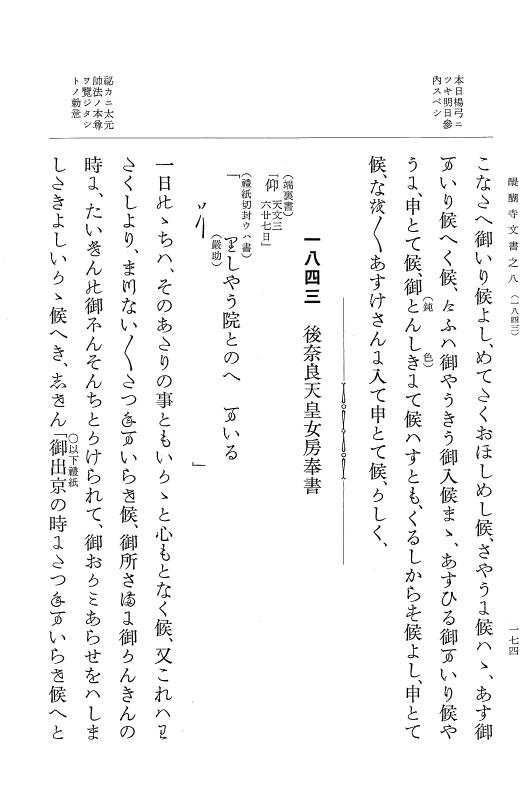 醍醐寺文書之八(一八四三)
一七四
本日楊弓ニ
ツキ明日參
内スベシ
こなたへ御いり候よし、めてたくおほしめし候、さやうに候ハヽ、あす御
まいり候へく候、けふハ御やうきう御入候まヽ、あすひる御まいり候や
うに、申とて候、御とんしきにて候ハすとも、くるしからす候よし、申とて
(鈍色)
候、なを〳〵あすけさんに入て申とて候、かしく、
一八四三 後奈良天皇女房奉書
(端裏書)
「仰 天文三 六廿七日」
(禮紙切封ウハ書)
「りしやう院とのへ まいる
(嚴助)
」
一日のヽちハ、そのあたりの事ともいかヽと心もとなく候、又これハわ
たくしより、まつない〳〵たつねまいらせ候、御所さまに御かんきんの
時に、たいけんの御ほんそんちとかけられて、御おかミあらせをハしま
したきよしいかヽ候へき、しせん「御出京の時にたつねまいらせ候へと
○以下禮紙
祕カニ太元
帥法ノ本尊
ヲ覽ジタシ
トノ勅意